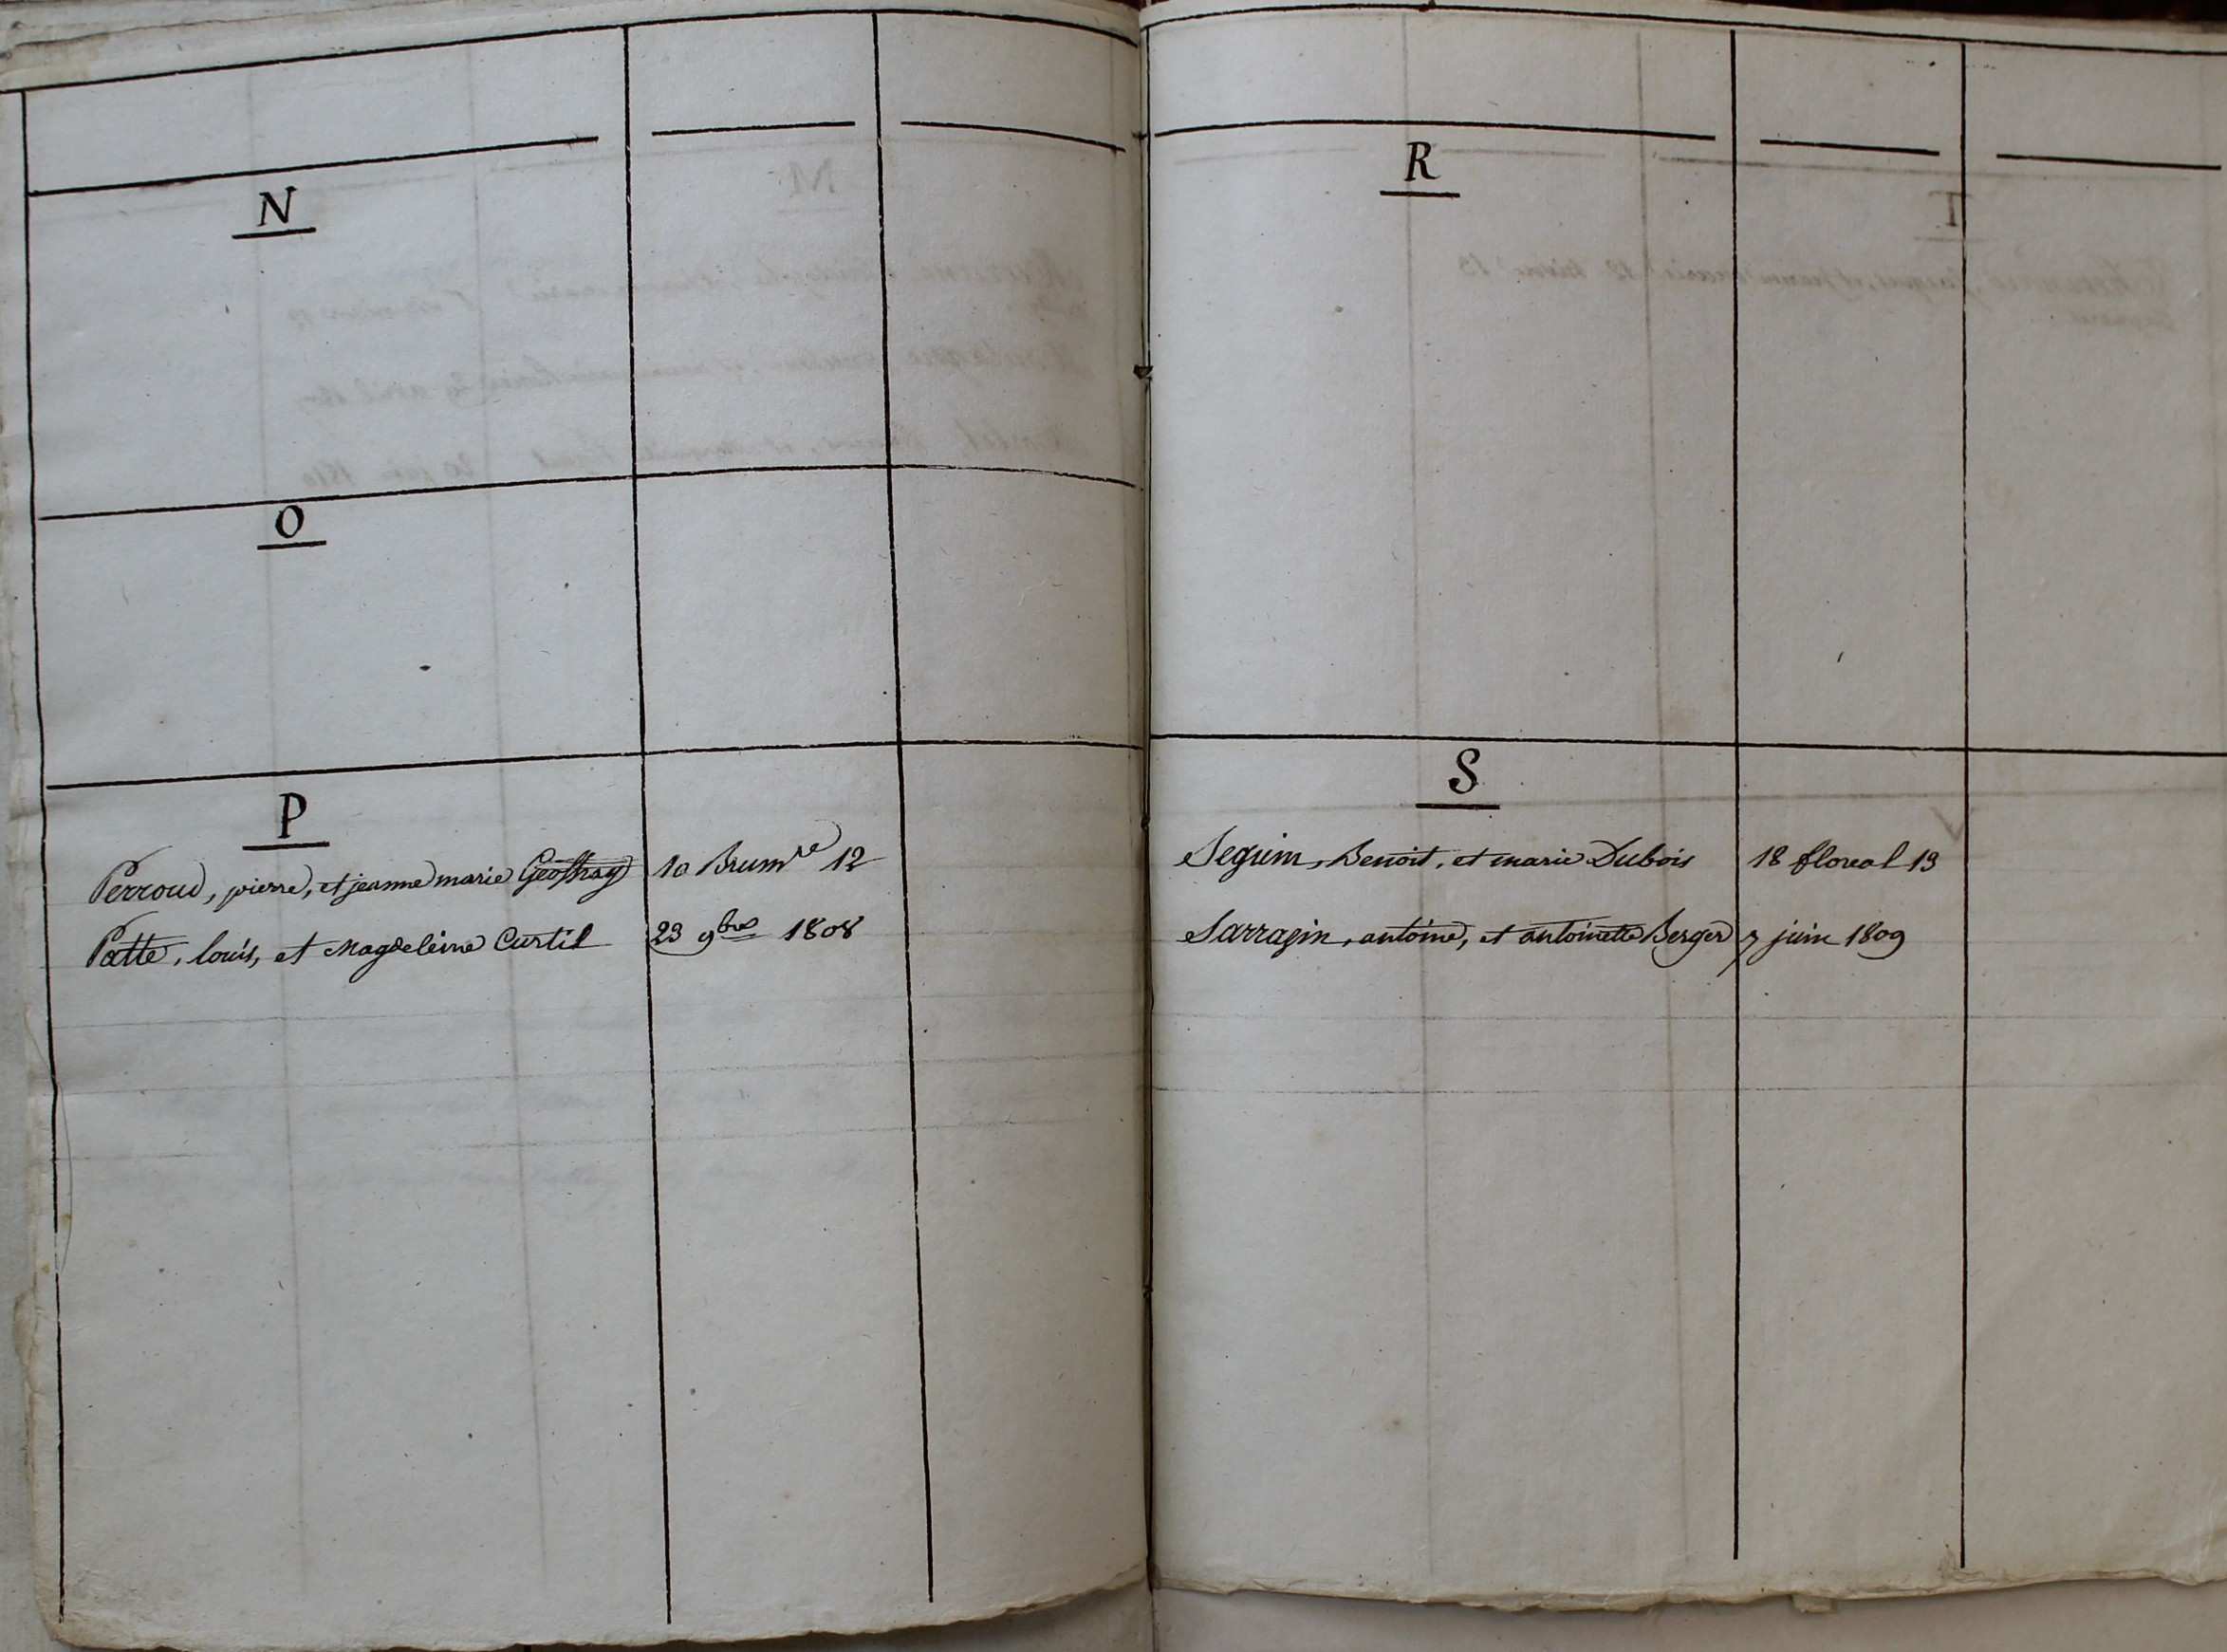 N
O
P
Perroud, pierre, et jeanne marie Geoffray 10 Brum.re 12
Patte, louis, et Magdeleine Curtil 23 9bre 1808
R
S
Seguin, Benoit, et marie Dubois 18 floreal 13
Sarrazin, antoine, et antoinette Berger 7 juin 1809